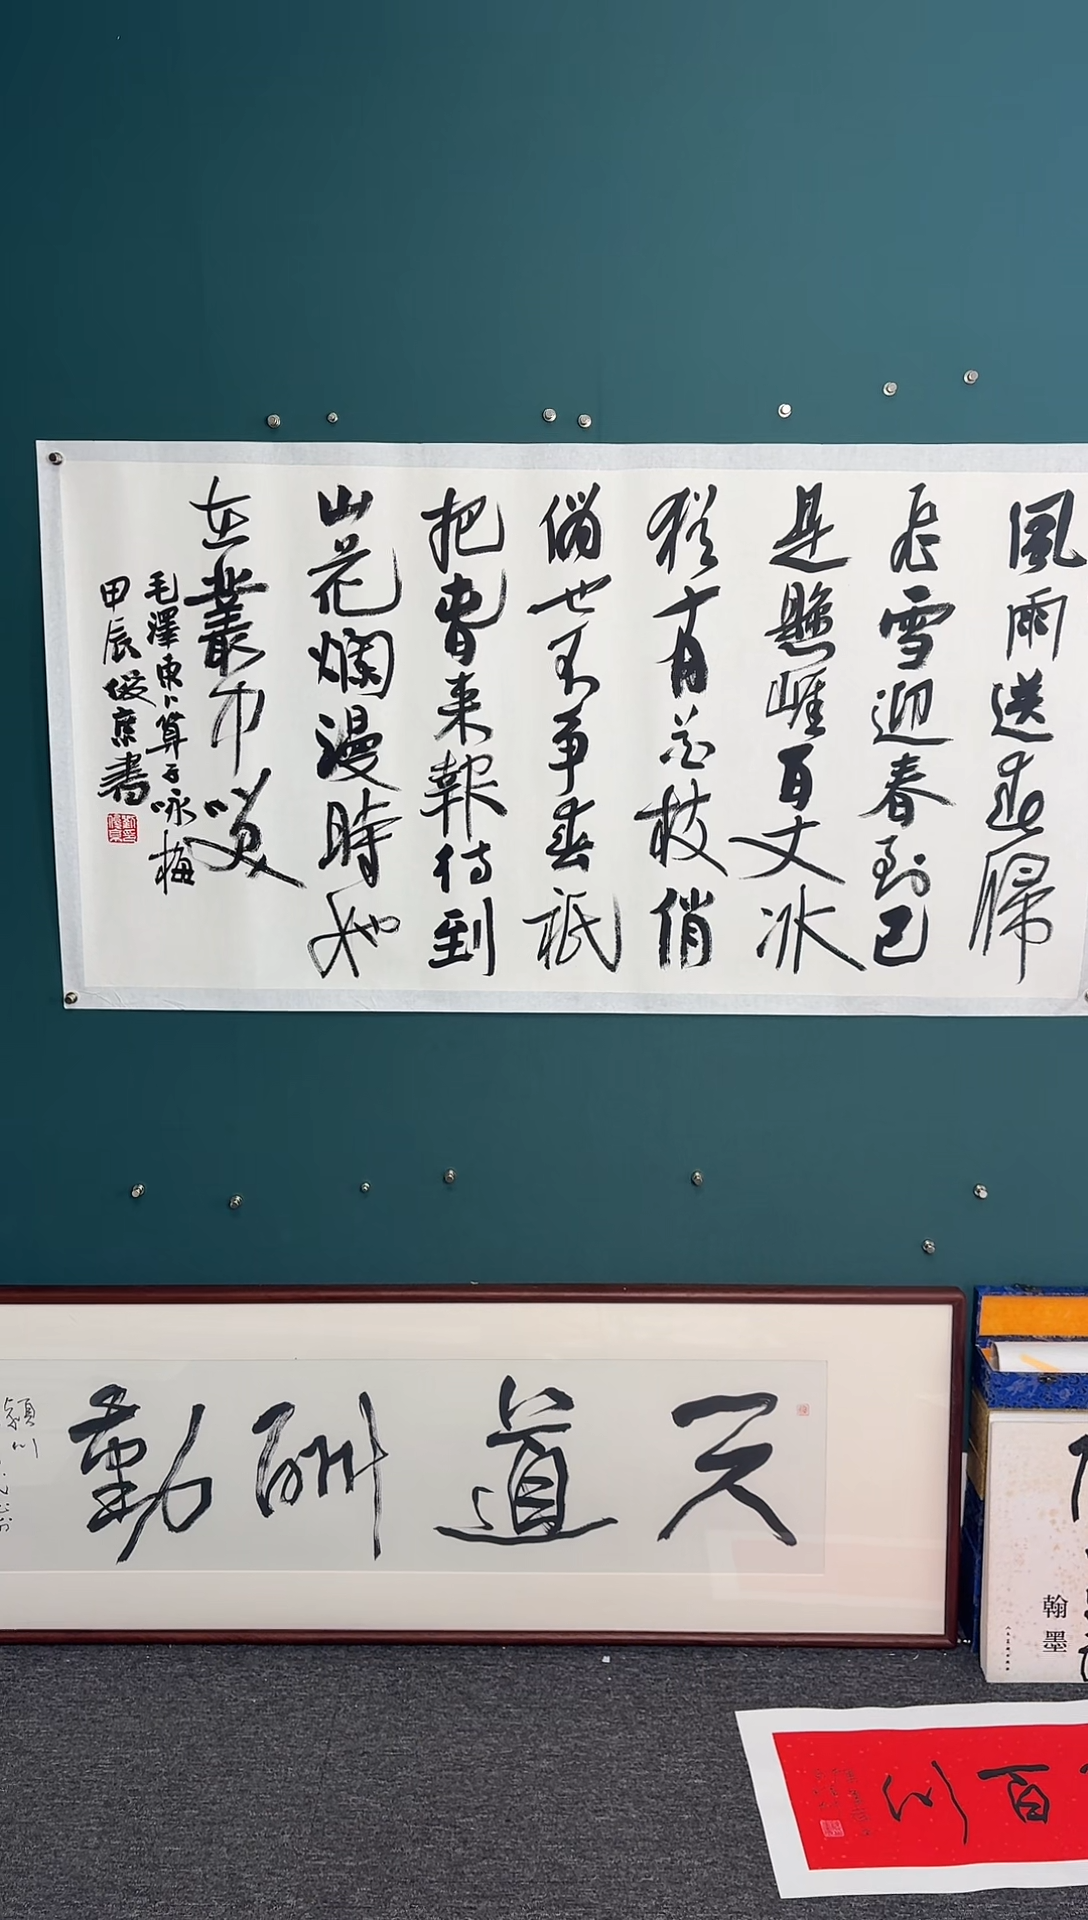 風雨送春歸
飛雪迎春到已
是懸崖百丈冰
猶有花枝俏
俏也不爭春祇
把春來報待到
山花爛漫時她
在叢中笑
毛澤東卜算子咏梅
甲辰俊京書
天道酬勤
翰墨
百川